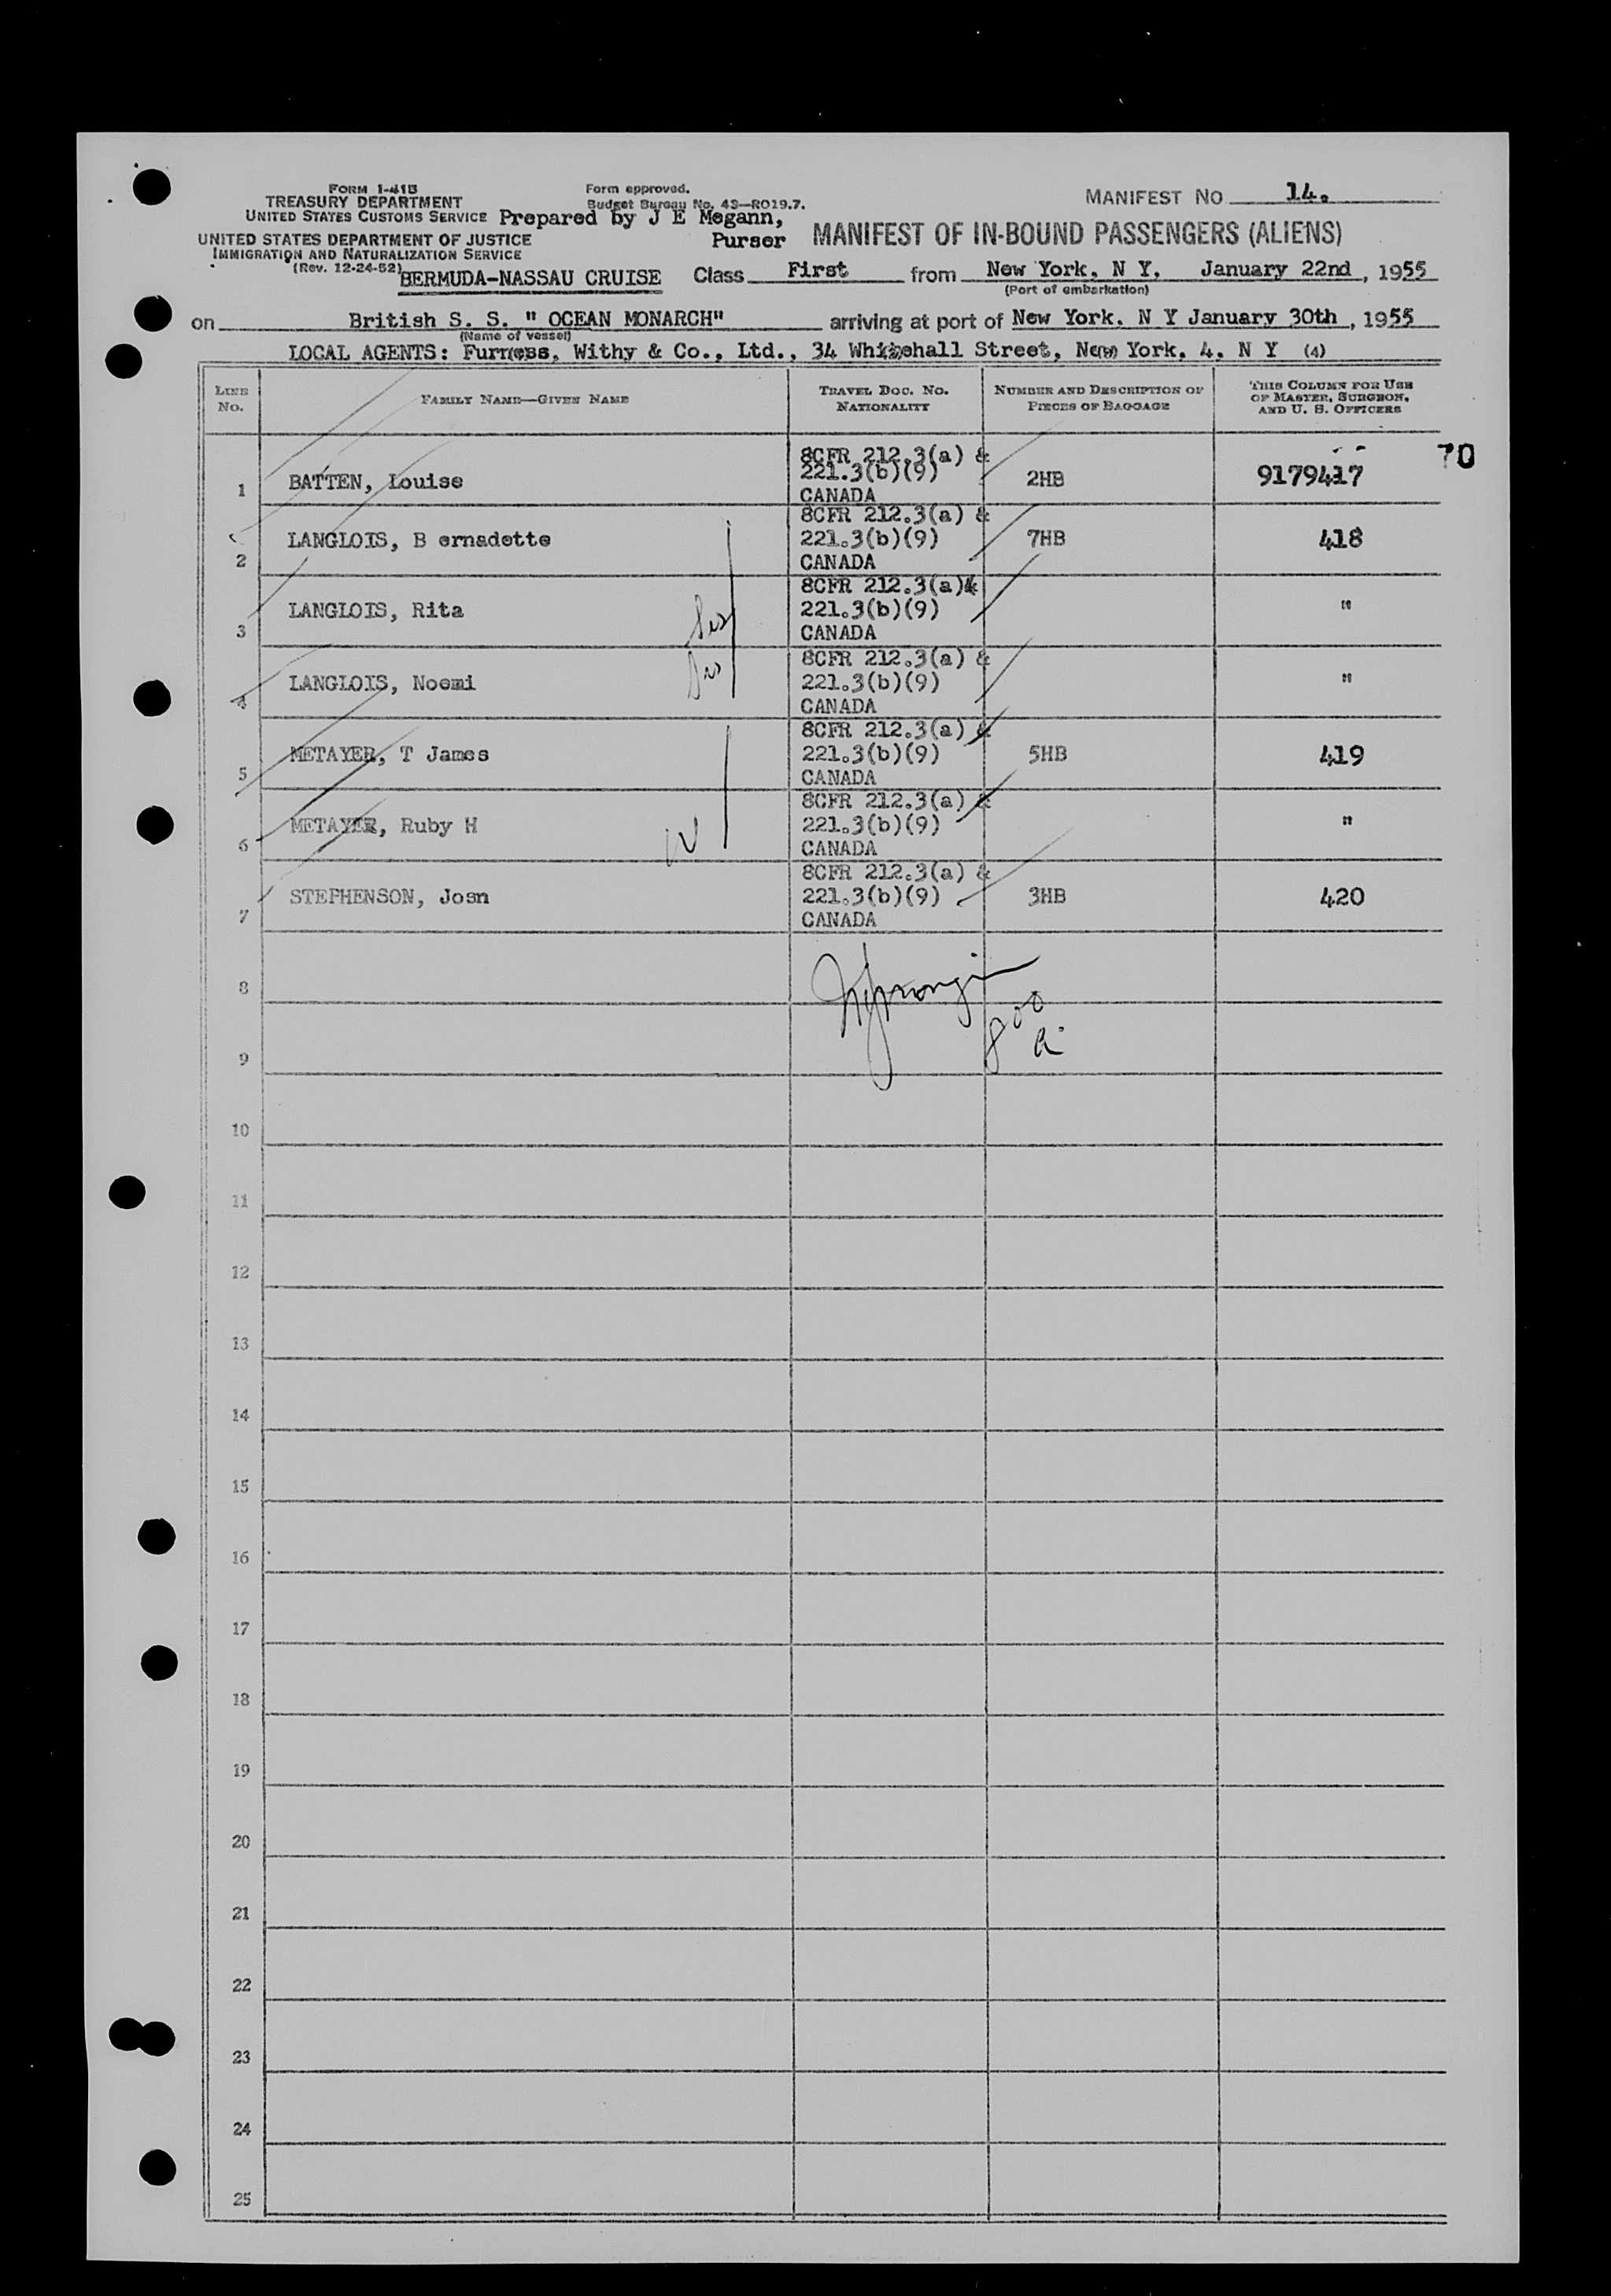 FORM I-41B
TREASURY DEPARTMENT
UNITED STATES CUSTOMS SERVICE
UNITED STATES DEPARTMENT OF JUSTICE
IMMIGRATION AND NATURALIZATION SERVICE
(Rev. 12-24-52)
Form approved.
Budget Bureau No. 43—R019.7.
Prepared by J E Megann,
Purser
MANIFEST NO 14.
MANIFEST OF IN-BOUND PASSENGERS (ALIENS)
BERMUDA-NASSAU CRUISE Class First from New York, N Y, January 22nd, 1955
(Port of embarkation)
on British S. S. " OCEAN MONARCH" arriving at port of New York, N Y January 30th, 1955
(Name of vessel)
LOCAL AGENTS: Furness, Withy & Co., Ltd., 34 Whitehall Street, New York, 4, N Y (4)
LINE NO. FAMILY NAME—GIVEN NAME TRAVEL DOC. NO. NATIONALITY NUMBER AND DESCRIPTION OF PIECES OF BAGGAGE THIS COLUMN FOR USE OF MASTER, SURGEON, AND U. S. OFFICERS
70
8CFR 212.3(a) &
1 BATTEN, Louise 221.3(b)(9) 2HB 9179417
CANADA
8CFR 212.3(a) &
2 LANGLOIS, B ernadette 221.3(b)(9) 7HB 418
CANADA
8CFR 212.3(a)&
3 LANGLOIS, Rita Sis 221.3(b)(9) "
CANADA
8CFR 212.3(a) &
4 LANGLOIS, Noemi Sis 221.3(b)(9) "
CANADA
8CFR 212.3(a) &
5 METAYER, T James 221.3(b)(9) 5HB 419
CANADA
8CFR 212.3(a) &
6 METAYER, Ruby H W 221.3(b)(9) "
CANADA
8CFR 212.3(a) &
7 STEPHENSON, Joan 221.3(b)(9) 3HB 420
CANADA
8
800
9
10
11
12
13
14
15
16
17
18
19
20
21
22
23
24
25